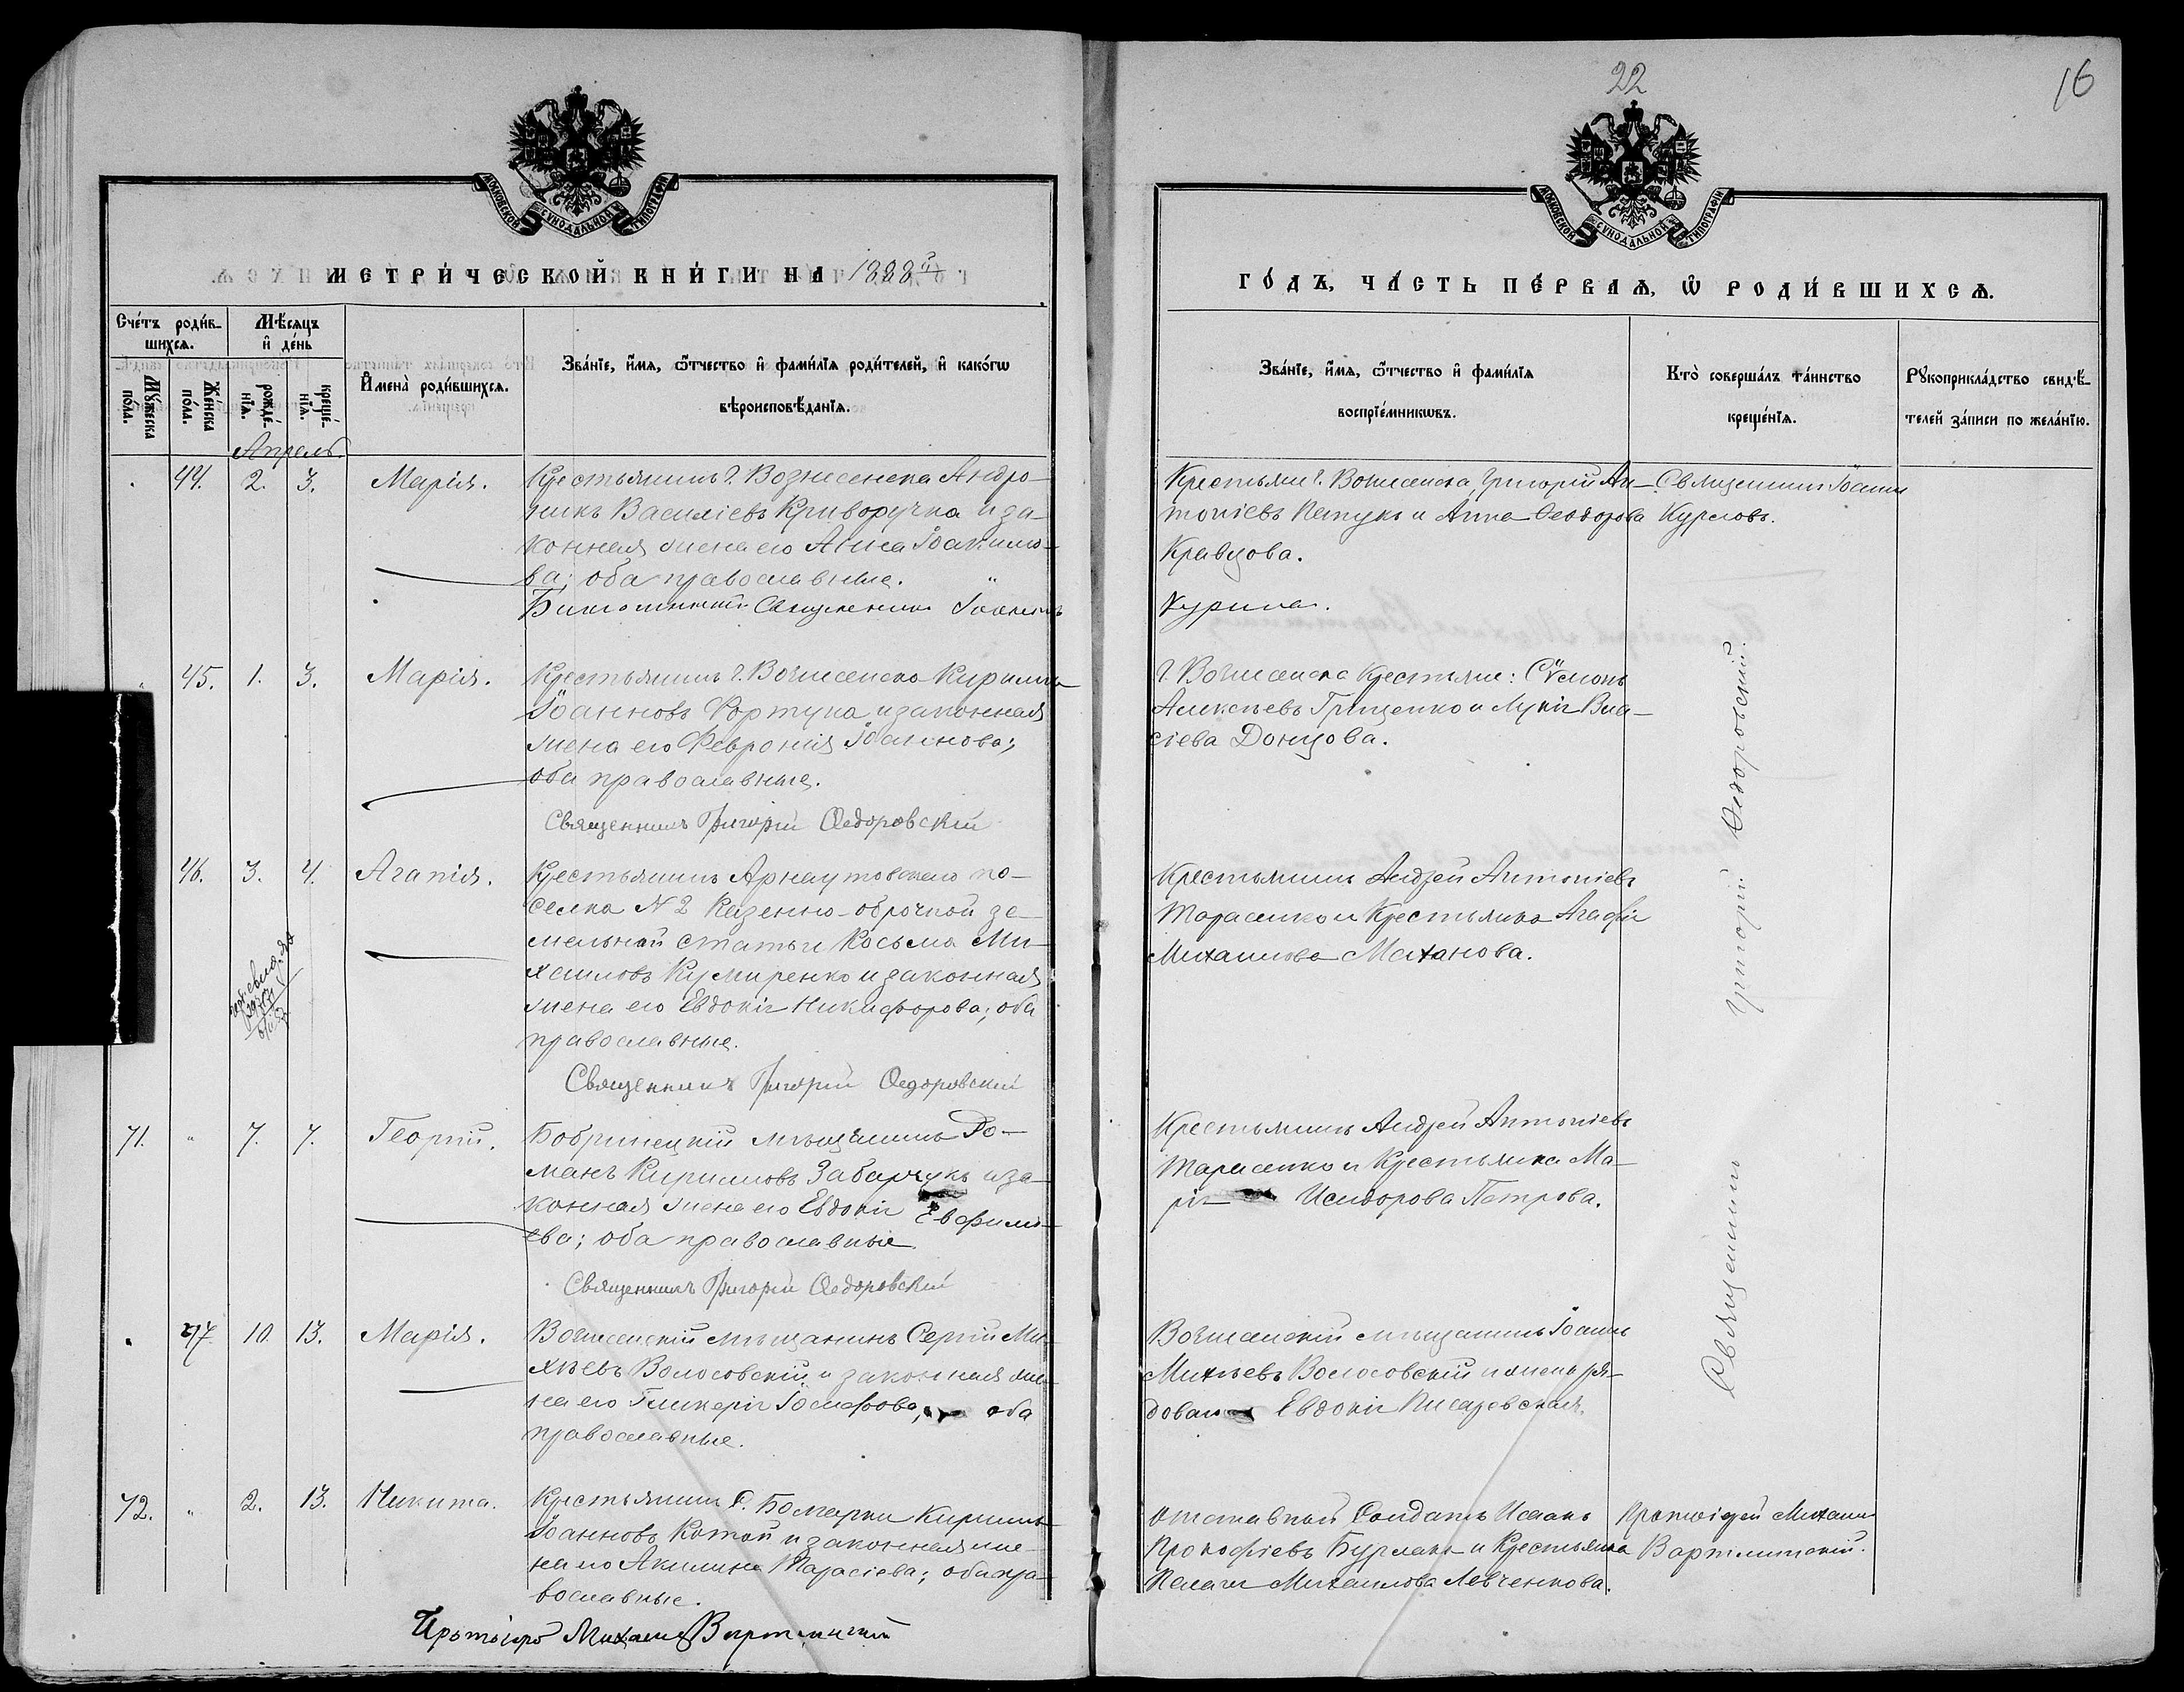 22
16
МОСКОВСКОЙ СУНОДАЛЬНОЙ ТИПОГРАФІИ
МОСКОВСКОЙ СУНОДАЛЬНОЙ ТИПОГРАФІИ
МЕТРИ́ЧЕСКОЙ КНИ́ГИ НА 1888й
ГО́ДЪ, ЧА́СТЬ ПЕ́РВАѦ, Ѡ РОДИ́ВШИХСѦ.
Сче́тъ роди́в-
шихсѧ.
Мꙋ́жеска по́ла.
Же́нска по́ла.
Мѣ́сѧцъ
и҆ де́нь
рожде́-
нїѧ.
креще́-
нїѧ.
И҆мена̀ роди́вшихсѧ.
Зва́нїе, и҆́мѧ, ѻ҆́тчество и҆ фамѝлїѧ роди́телей, и҆ како́гѡ
вѣроисповѣ́данїѧ.
Зва́нїе, и҆́мѧ, ѻ҆́тчество и҆ фамѝлїѧ
воспрїе́мникѡвъ.
Кто̀ соверша́лъ та́инство
креще́нїѧ.
Рꙋкоприкла́дство свидѣ́-
телей за́писи по жела́нїю.
Апрель
44. 2. 3. Марія.
Крестьянинъ г. Вознесенска Андро-
никъ Василіевъ Криворучка и за-
конная жена его Анна Іоакимо-
ва; оба православные.
Священникъ Іоаннъ
Крестьяне г. Вознесенска Григорій Ан-
тоніевъ Петукъ и Анна Ѳеодорова
Кравцова.
Священникъ Іоаннъ
45. 1. 3. Марія.
Крестьянинъ г. Вознесенска Кириллъ
Іоанновъ Фортуна и законная
жена его Февронія Іоаннова;
оба православные.
Священникъ Григорій Ѳедоровскій
г. Вознесенска Крестьяне: Сѵмеонъ
Алексѣевъ Грищенко и Лукія Вла-
сіева Донцова.
Священникъ Григорій Ѳедоровскій.
46. 3. 4. Агапія.
Крестьянинъ Арнаутовскаго по-
селка N 2 Казенно-оброчной зе-
мельной статьи Косьма Ми-
хаиловъ Кумиренко и законная
жена его Евдокія Никифорова; оба
православные.
Священникъ Григорій Ѳедоровскій
Крестьянинъ Андрей Антоніевъ
Тарасенко и Крестьянка Агафія
Михаилова Маханова.
71. " 7. 7. Георгій.
Бобринецкій мѣщанинъ Ро-
манъ Кирилловъ Забарчукъ и за-
конная жена его Евдокія Евфимі-
ева; оба православные
Священникъ Григорій Ѳедоровскій
Крестьянинъ Андрей Антоніевъ
Тарасенко и Крестьянка Ма-
рія Исидорова Петрова.
47 10. 13. Марія.
Вознесенскій мѣщанинъ Сергій Ми-
хѣевъ Волосовскій и законная же-
на его Гликерія Іосифова; оба
православные.
Вознесенскій мѣщанинъ Іоаннъ
Михѣевъ Волосовскій и жена ря-
доваго Евдокія Писаревская.
72. " 2. 13. Никита.
Крестьянинъ с. Болгарки Кириллъ
Іоанновъ Котой и законная же-
на его Акилина Тарасіева; оба пра-
вославные.
Отставный Солдатъ Исаакъ
Прокофіевъ Бурлака и Крестьянка
Пелагія Михаилова Левченкова.
Протоіерей Михаилъ
Вартминскій.
Протоіерей Михаилъ Вартминскій